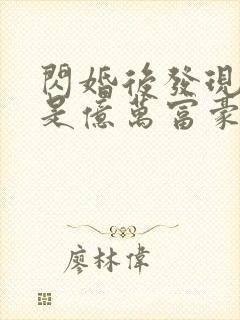 閃婚後發現
是億萬富豪
廖林偉